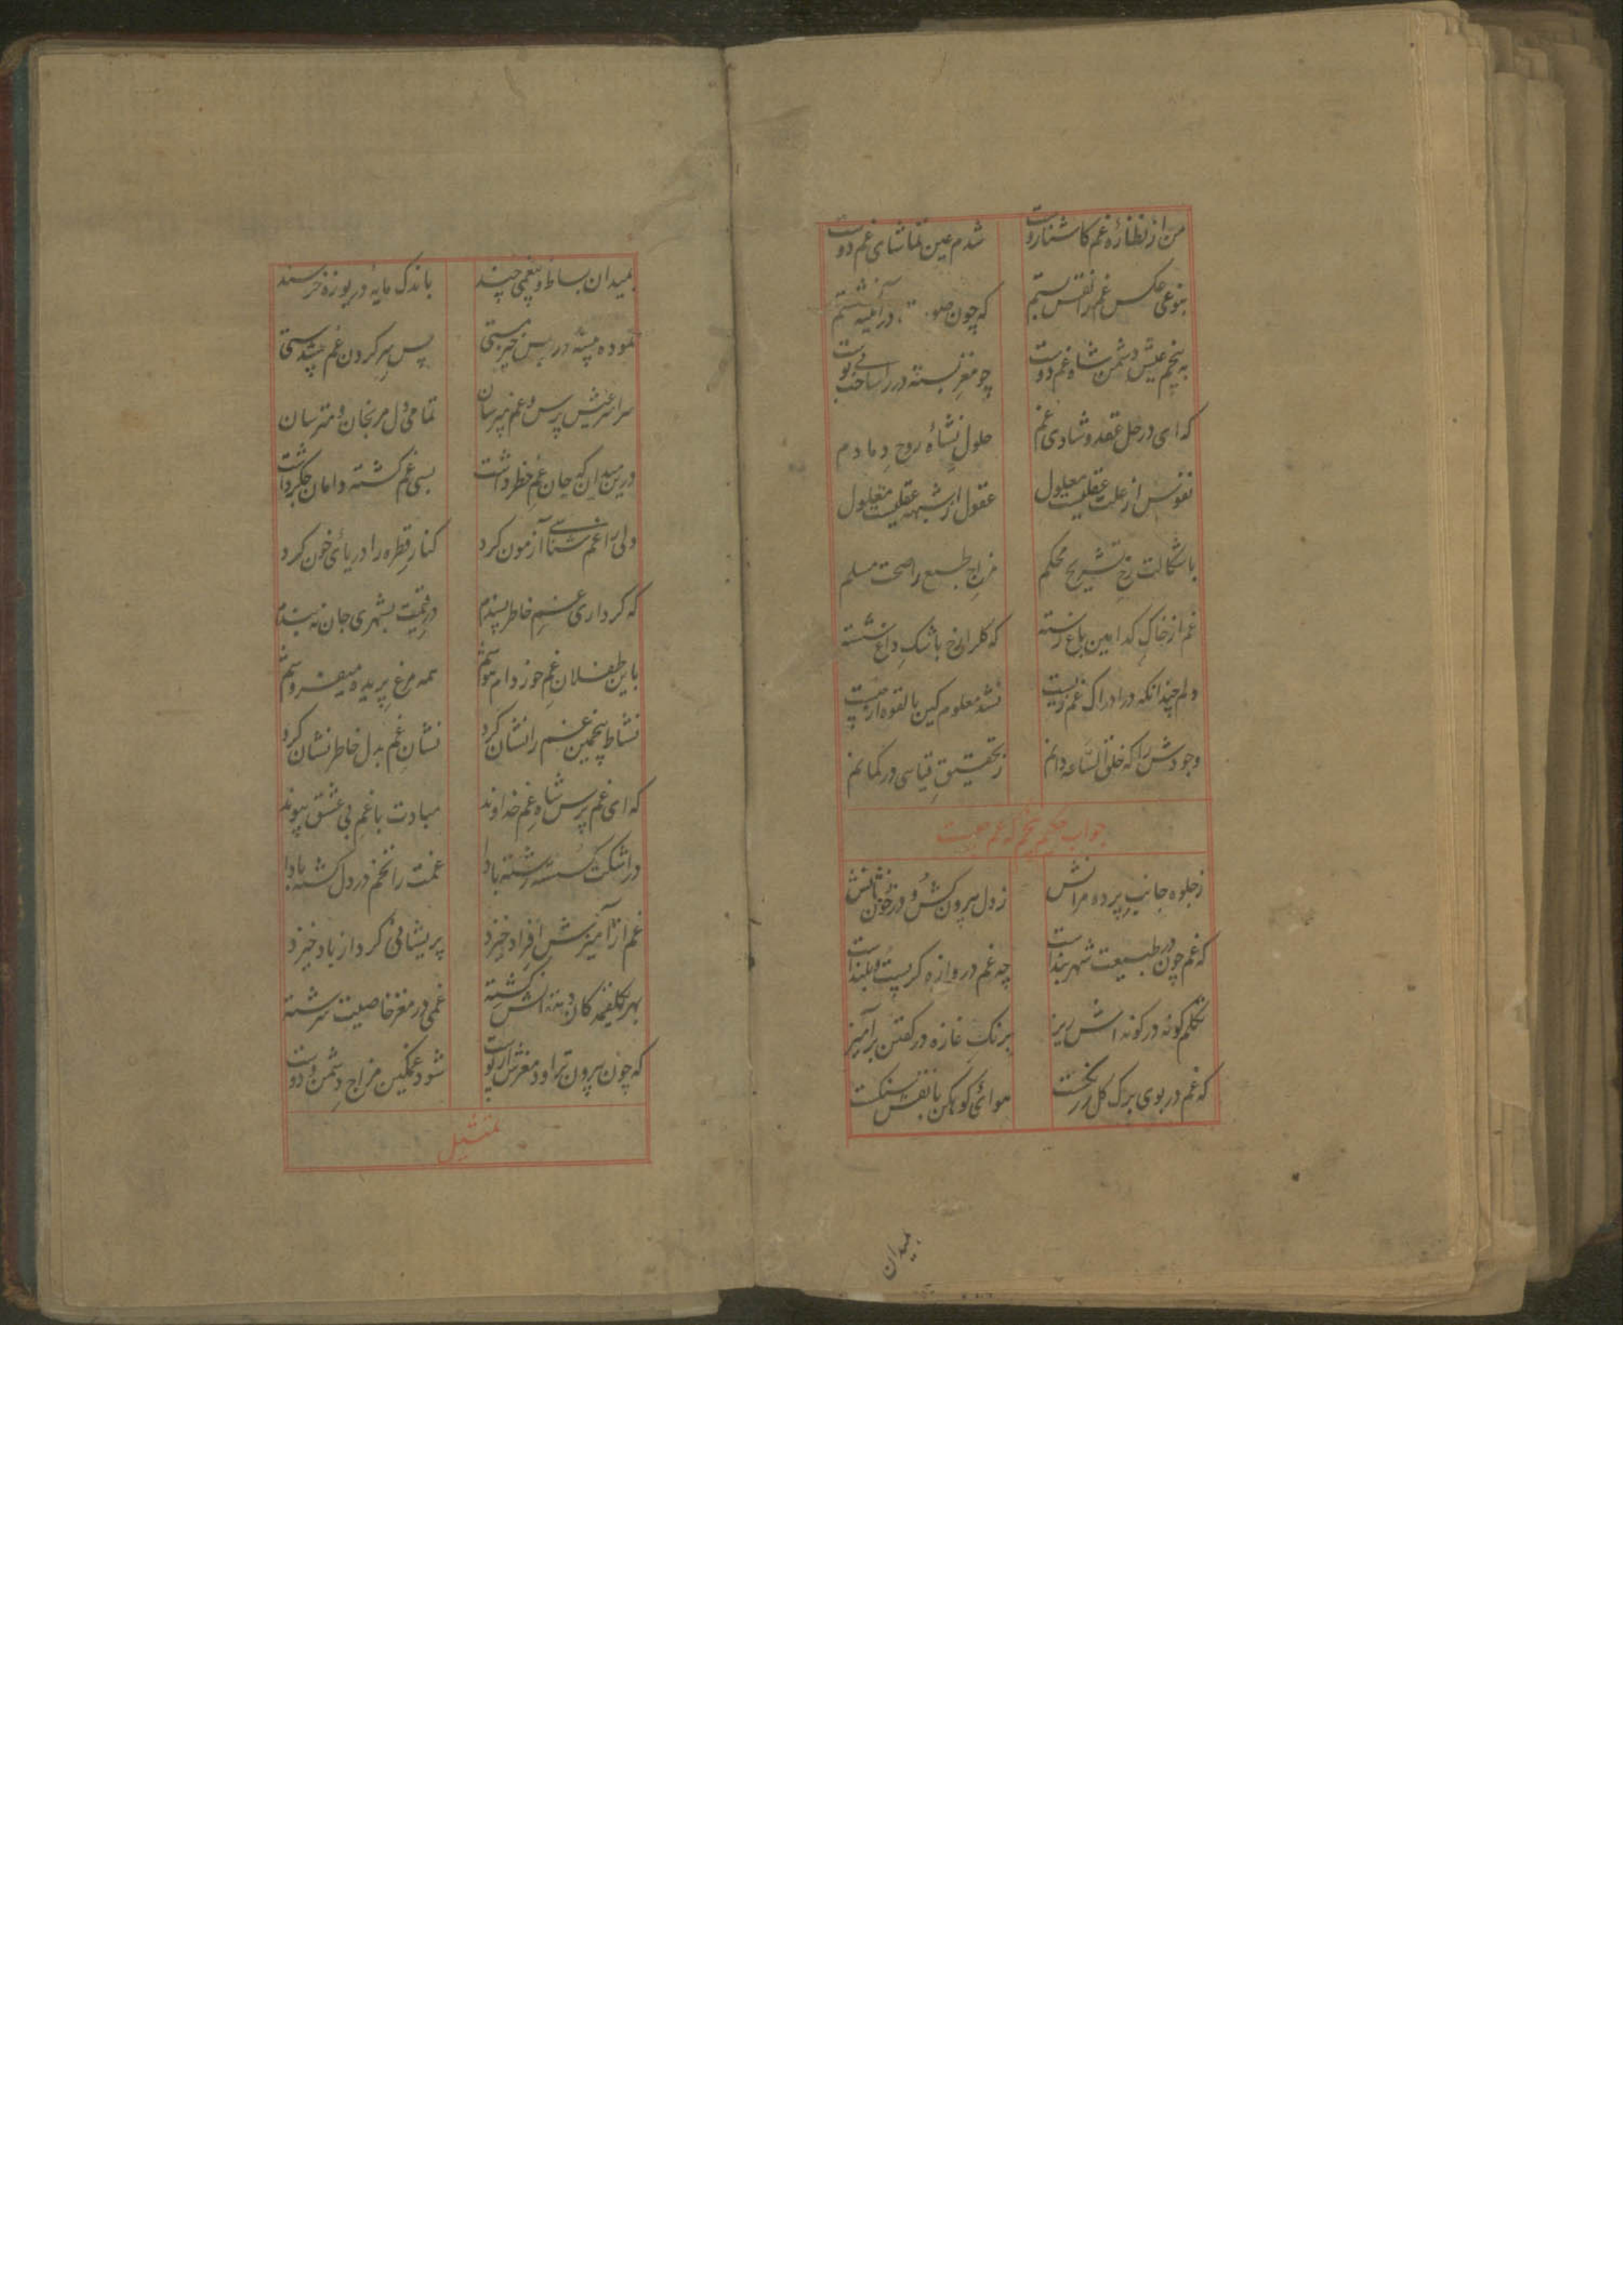 من از نظارهٔ غم کاشنا روست شدم عین تماشای غم دوست
بنوعی عکس غم را نقش بستم که چون در آئینه نشستم
به پنجم عیش دشمن شاه غم دوست چو مغز بسته در
که ای در حل عقد و شادی غم حلول نشاهٔ روح دمادم
نفوس از علت عقلیت معلول عقول از شبهه عقلیت معلول
باشکالت رخ تشریح محکم مزاج طبع را صحت مسلم
غم از خاک کدامین باغ رسته که گلرانخ باشک داغ شسته
دلم چندانکه در ادراک غم زیست نشد معلوم کین بالقوه از چیست
وجودش را که خلق الساعه دانم ز تحقیق قیاسی در گمانم
جواب حکیم پنجم که غم چیست
ز جلوه جانب پرده مرانش ز دل بیرون کش و در خون نشانش
که غم چون در طبیعت شهربند است چه غم دروازه گر پست و بلند است
تکلم گونه در گونه اش ریز برنگ غازه در گفتن برآمیز
که غم در بوی برگ گل ز رنگست هوائی کوهکن با نقش سنگست
بمیدان
بمیدان بساط و پنغمی چند باندک مایه دریوزه خرسند
نموده پیشه در پس خیز مستی پس سر کردن غم پیشدستی
سراسر عیش پرس و غم مپرسان تمامی دل مرنجان و مترسان
درین میدان که جان غم خطر داشت بسی غم کشته دامان جگر داشت
دلی را غم شناسی آزمون کرد کنار قطره را دریائی خون کرد
که گر داری غم خاطر پسندم در قیمت بشهری جان نه بندم
باین طفلان غم خور دام هوشم همه مرغ پریده میفروشم
نشاط پنجمین غم را نشان کرد نشان غم بدل خاطر نشان کرد
که ای غم پرس شاه غم خداوند مبادت با غم بی عشق پیوند
در اشکت گسسته رشته بادا غمت را تخم در دل کشته بادا
غم از آمیزش افراد خیزد پریشانی گرد از باد خیزد
بهر کلفه کان غمی در مغز خاصیت سرشته
که چون بیرون تراود مغزش از پوست شود غمگین مزاج دشمن و دوست
تمثیل